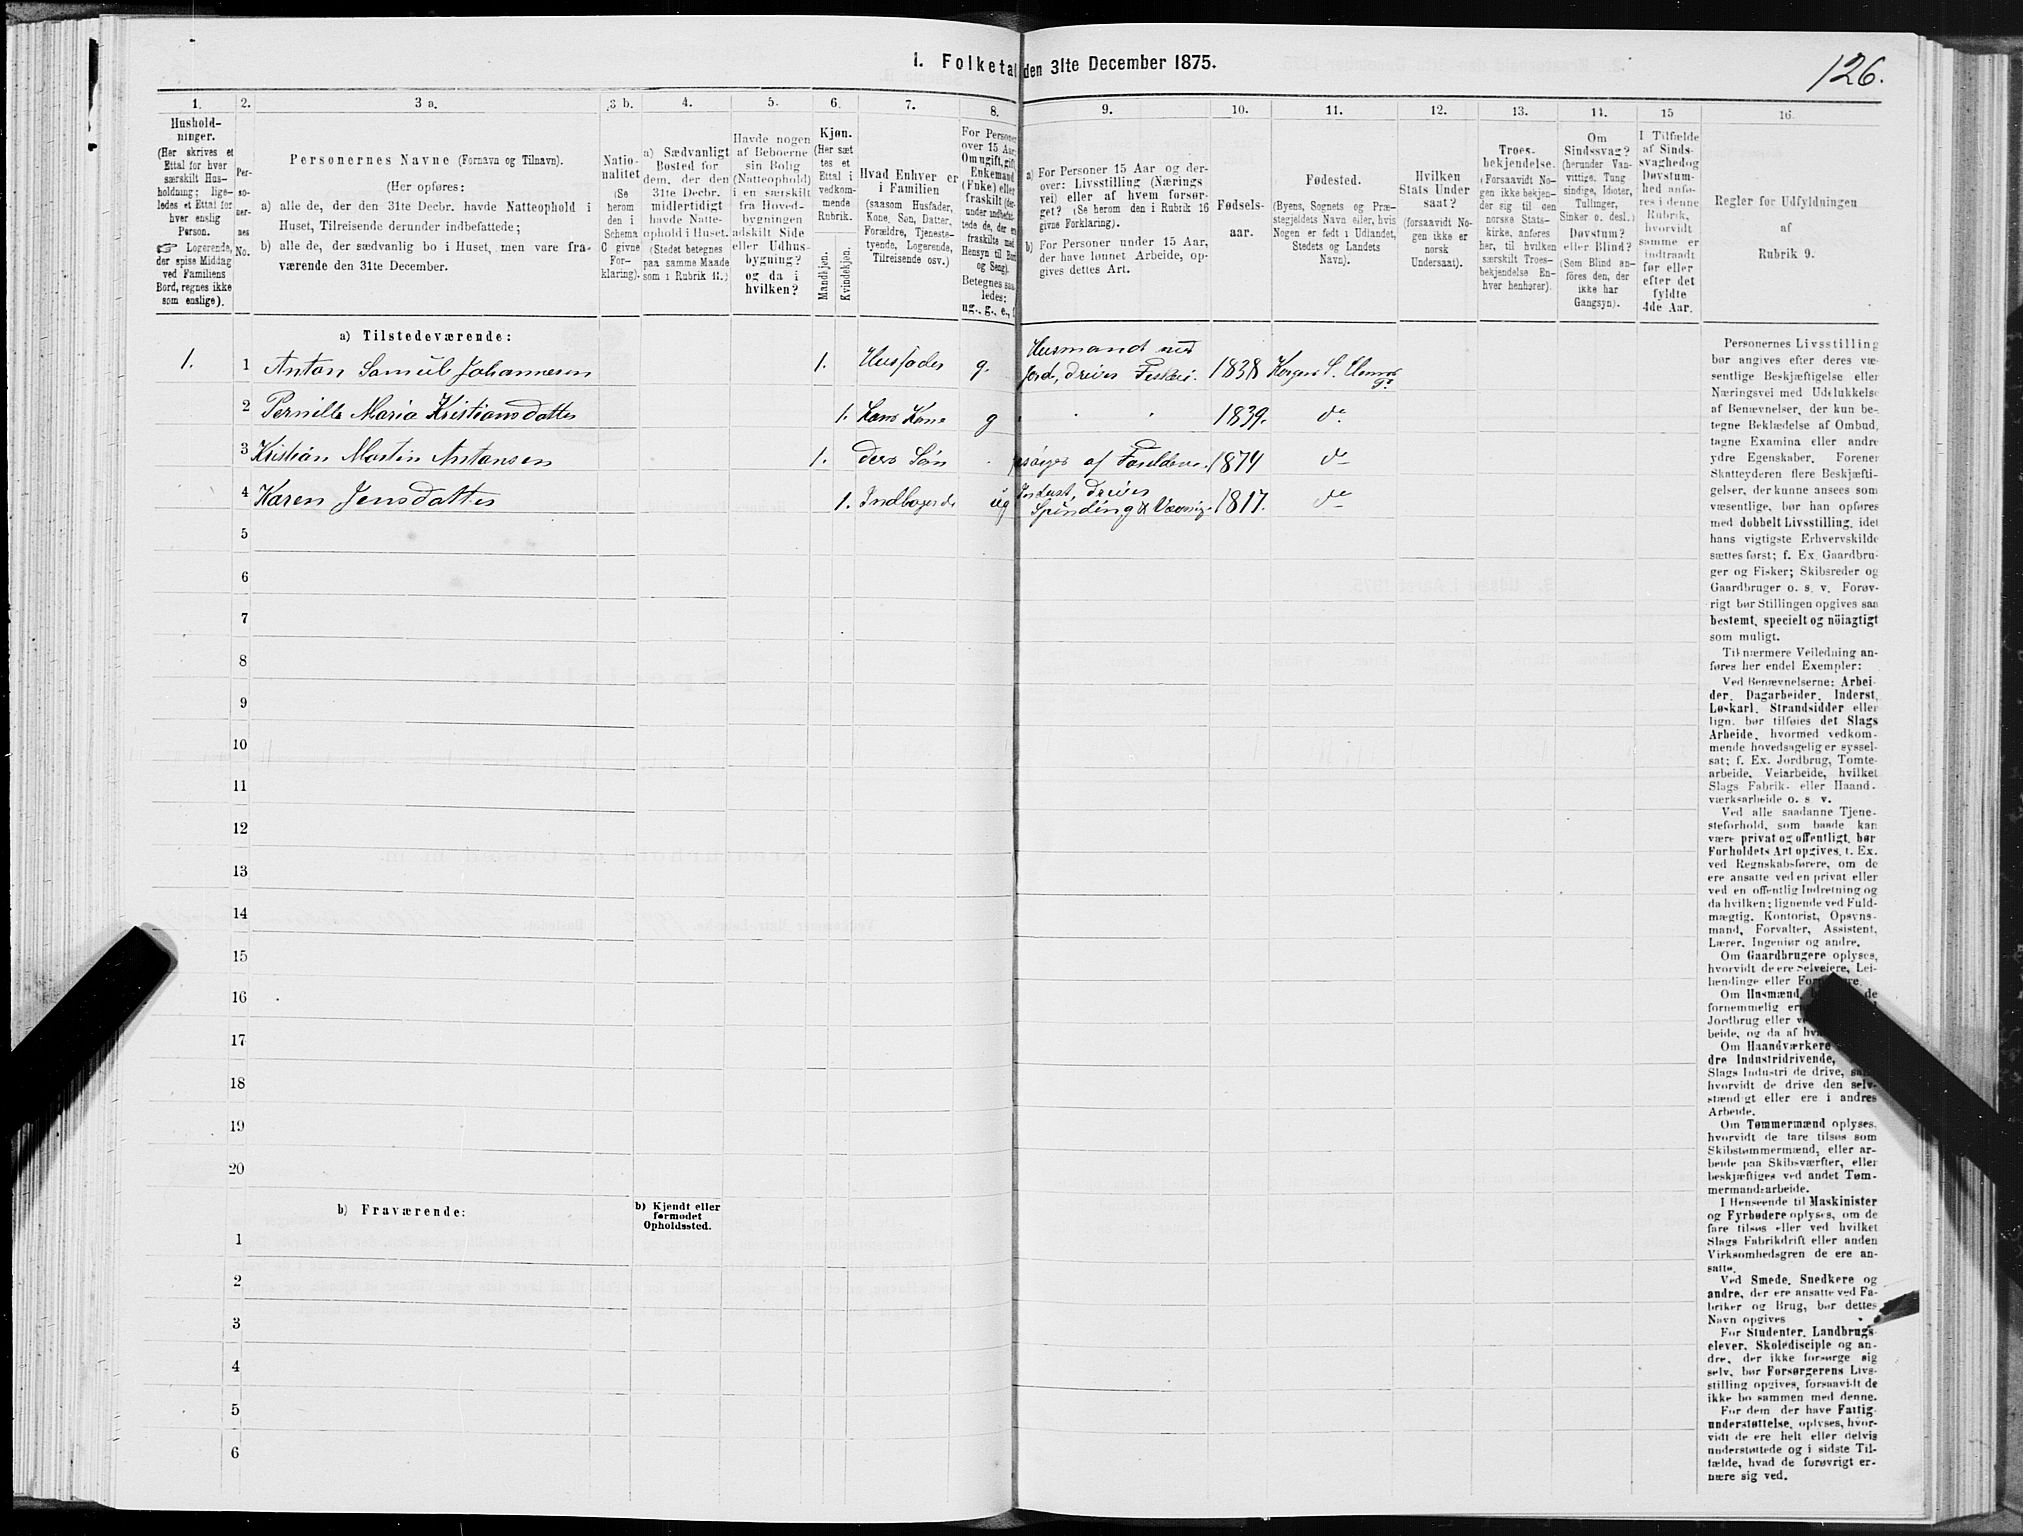 1. Folketal den 31te December 1875.
126.
1.
2.
3 a.
3 b.
4.
5.
6.
7.
8.
9.
10.
11.
12.
13.
14.
15
16.
Hushold-
ninger.
(Her skrives et
Ettal for hver
særskilt Hus-
holdning; lige-
ledes et Ettal for
hver enslig
Person.
☞ Logerende,
der spise Middag
ved Familiens
Bord, regnes ikke
som enslige).
Per-
so-
ner-
nes
No.
Personernes Navne (Fornavn og Tilnavn).
(Her opføres:
a) alle de, der den 31te Decbr. havde Natteophold i
Huset, Tilreisende derunder indbefattede;
b) alle de, der sædvanlig bo i Huset, men vare fra-
værende den 31te December.
Natio-
nalitet
(Se
herom
den i
Schema
C givne
For-
klaring).
a) Sædvanligt
Bosted for
dem, der den
31te Decbr.
midlertidigt
havde Natte-
ophold i Huset.
(Stedet betegnes
paa samme Maade
som i Rubrik 11.)
Havde nogen
af Beboerne
sin Bolig
(Natteophold)
i en særskilt
fra Hoved-
bygningen
adskilt Side
eller Udhus-
bygning?
og da i
hvilken?
Kjøn.
(Her sæt
tes et
Ettal i
vedkom-
mende
Rubrik.
Mandkjøn.
Kvindekjøn.
Hvad Enhver er
i Familien
(saasom Husfader,
Kone, Søn, Datter,
Forældre, Tjeneste-
tyende, Logerende,
Tilreisende osv.)
For Personer
over 15 Aar:
Om ugift, gift,
Enkemand
(Enke) eller
fraskilt (der-
under indbefat-
tede de, der ere
fraskilte med
Hensyn til Bord
og Seng).
Betegnes saa-
ledes:
ug., g., e., f.
a) For Personer 15 Aar og der-
over: Livsstilling (Nærings
vei) eller af hvem forsør-
get? (Se herom den i Rubrik 16
givne Forklaring).
b) For Personer under 15 Aar,
der have lønnet Arbeide, op-
gives dettes Art.
Fødsels-
aar.
Fødested.
(Byens, Sognets og Præ-
stegjeldets Navn eller, hvis
Nogen er født i Udlandet,
Stedets og Landets
Navn).
Hvilken
Stats Under
saat?
(forsaavidt No-
gen ikke er
norsk
Undersaat).
Troes-
bekjendelse.
(Forsaavidt No-
gen ikke bekjen-
der sig til den
norske Stats-
kirke, anføres
her, til hvilken
særskilt Troes-
bekjendelse En-
hver henhører).
Om
Sindssvag?
(herunder Van-
vittige, Tung
sindige, Idioter,
Tullinger,
Sinker o. desl.)
Døvstum?
eller Blind?
(Som Blind an-
føres den, der
ikke har
Gangsyn).
I Tilfælde
af Sinds-
svaghed og
Døvstum-
hed anfø-
res i denne
Rubrik,
hvorvidt
samme er
indtraadt
før eller
efter det
fyldte
4de Aar.
Regler for Udfyldningen
af
Rubrik 9.
a) Tilstedeværende:
1. 1 Anton Samuel Johannesen 1. Husfader g. Husmand med
Jord, driver Fiskeri. 1838
2 Pernille Maria Kristiansdatter 1. Hans Kone g " " " 1839. do
3 Kristian Martin Antonsen 1. deres Søn . forsørges af Forældrene. 1874 do
4 Karen Jensdatter 1. Inderst, driver
Spinding & Vævning. 1817. do
5
6
7
8
9
10
11
12
13
14
15
16
17
18
19
20
b) Fraværende:
b) Kjendt eller
formodet
Opholdssted.
1
2
3
4
5
6
Personernes Livsstilling
bør angives efter deres væ-
sentlige Beskjæftigelse eller
Næringsvei med Udelukkelse
af Benævnelser, der kun be-
tegne Beklædelse af Ombud,
tagne Examina eller andre
ydre Egenskaber. Forener
Skatteyderen flere Beskjæfti-
gelser, der kunne ansees som
væsentlige, bør han opføres
med dobbelt Livsstilling, idet
hans vigtigste Erhvervskilde
sættes først; f. Ex. Gaardbru-
ger og Fisker; Skibsreder og
Gaardbruger o. s. v. Forøv-
rigt bør Stillingen opgives saa
bestemt, specielt og nöiagtigt
som muligt.
Til nærmere Veiledning an-
føres her endel Exempler:
Ved Benævnelserne: Arbei-
der, Dagarbeider, Inderst,
Løskarl, Strandsidder eller
lign. bør tilføies det Slags
Arbeide, hvormed vedkom-
mende hovedsagelig er syssel-
sat; f. Ex. Jordbrug, Tomte-
arbeide, Veiarbeide, hvilket
Slags Fabrik- eller Haand-
værksarbeide o. s. v.
Ved alle saadanne Tjene-
steforhold, som baade kan
være privat og offentligt, bør
Forholdets Art opgives, t. Ex.
ved Regnskabsførere, om de
ere ansatte ved en privat eller
ved en offentlig Indretning og
da hvilken; lignende ved Fuld-
mægtig, Kontorist, Opsyns-
mand, Forvalter, Assistent,
Lærer, Ingeniør og andre.
Om Gaardbrugere oplyses,
hvorvidt de ere Selveiere, Lei-
lændinge eller
Om Husmænd, de
fornemmelig
Jordbrug eller
beide, og da af
Om Haandværkere
dre Industridrivende,
Slags Industri de drive, samt
hvorvidt de drive den selv-
stændigt eller ere i andres
Arbeide.
Om Tømmermænd oplyses,
hvorvidt de fare tilsøs som
Skibstømmermænd, eller ar-
beide paa Skibsværfter, eller
beskjæftiges ved andet Tøm-
mermandsarbeide.
I Henseende til Maskinister
og Fyrbødere oplyses, om de
fare tilsøs eller ved hvilket
Slags Fabrikdrift eller anden
Virksomhedsgren de ere an-
satte.
Ved Smede, Snedkere og
andre, der ere ansatte ved Fa-
briker og Brug, bør dettes
Navn opgives
For Studenter, Landbrugs-
elever, Skoledisciple og an-
dre, der ikke forsørge sig
selv, bør Forsørgerens Livs-
stilling opgives, forsaavidt de
ikke bo sammen med denne.
For dem der have Fattig-
understøttelse, oplyses, hvor-
vidt de ere helt eller delvis
understøttede og i sidste Til-
fælde, hvad de forøvrigt er-
nære sig ved.